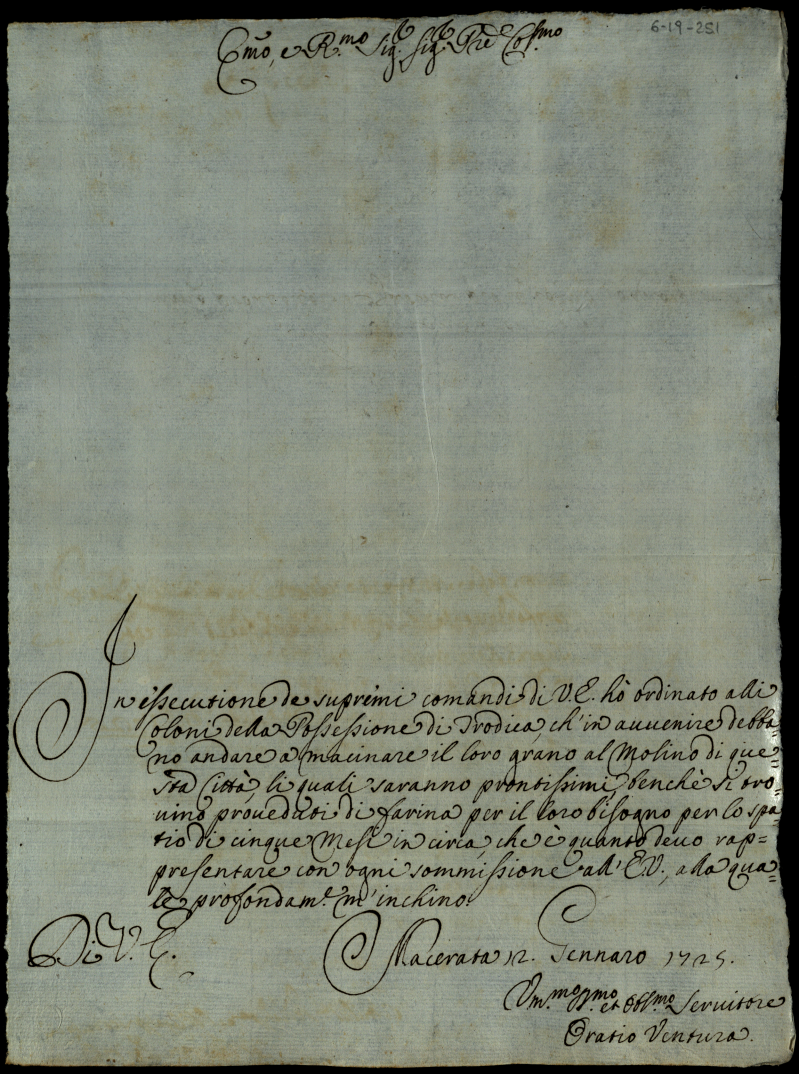 6-19-251
Em̃o, e R.mo Sig.r Sig.r Prẽ Col.mo
In essecutione de supremi comandi di V.E. hò ordinato alli
Coloni della Possessione di Trodica, ch'in avvenire debba-
no andare a macinare il loro grano al Molino di que-
sta Città, li quali saranno prontissimi, benchè si tro-
vino proveduti di farina per il loro bisogno per lo spa-
tio di cinque Mesi in circa, che è quanto devo rap=
presentare con ogni sommissione all' E.V., alla qua-
le profondam.e m'inchino.
Di V. E.
Macerata 12. Gennaro 1725.
Vm.mo et Obl.mo Servitore
Oratio Ventura